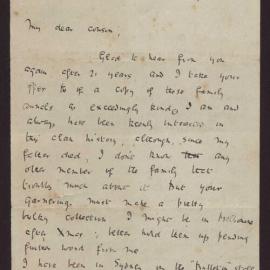 My dear cousin,
Glad to hear from you
again after 21 years and I take your
offer to of a copy of these family
annals as exceedingly kind. I am and
always have been keenly interested in
this clan history, although, since my
father died, I don't know any
other member of the family that
troubles much about it. But your
gardening must make a pretty
bulky collection. I might be in Melbourne
after Xmas; better hold them up pending
further word from me.
I have been in Sydney on the "Bulletin" staff